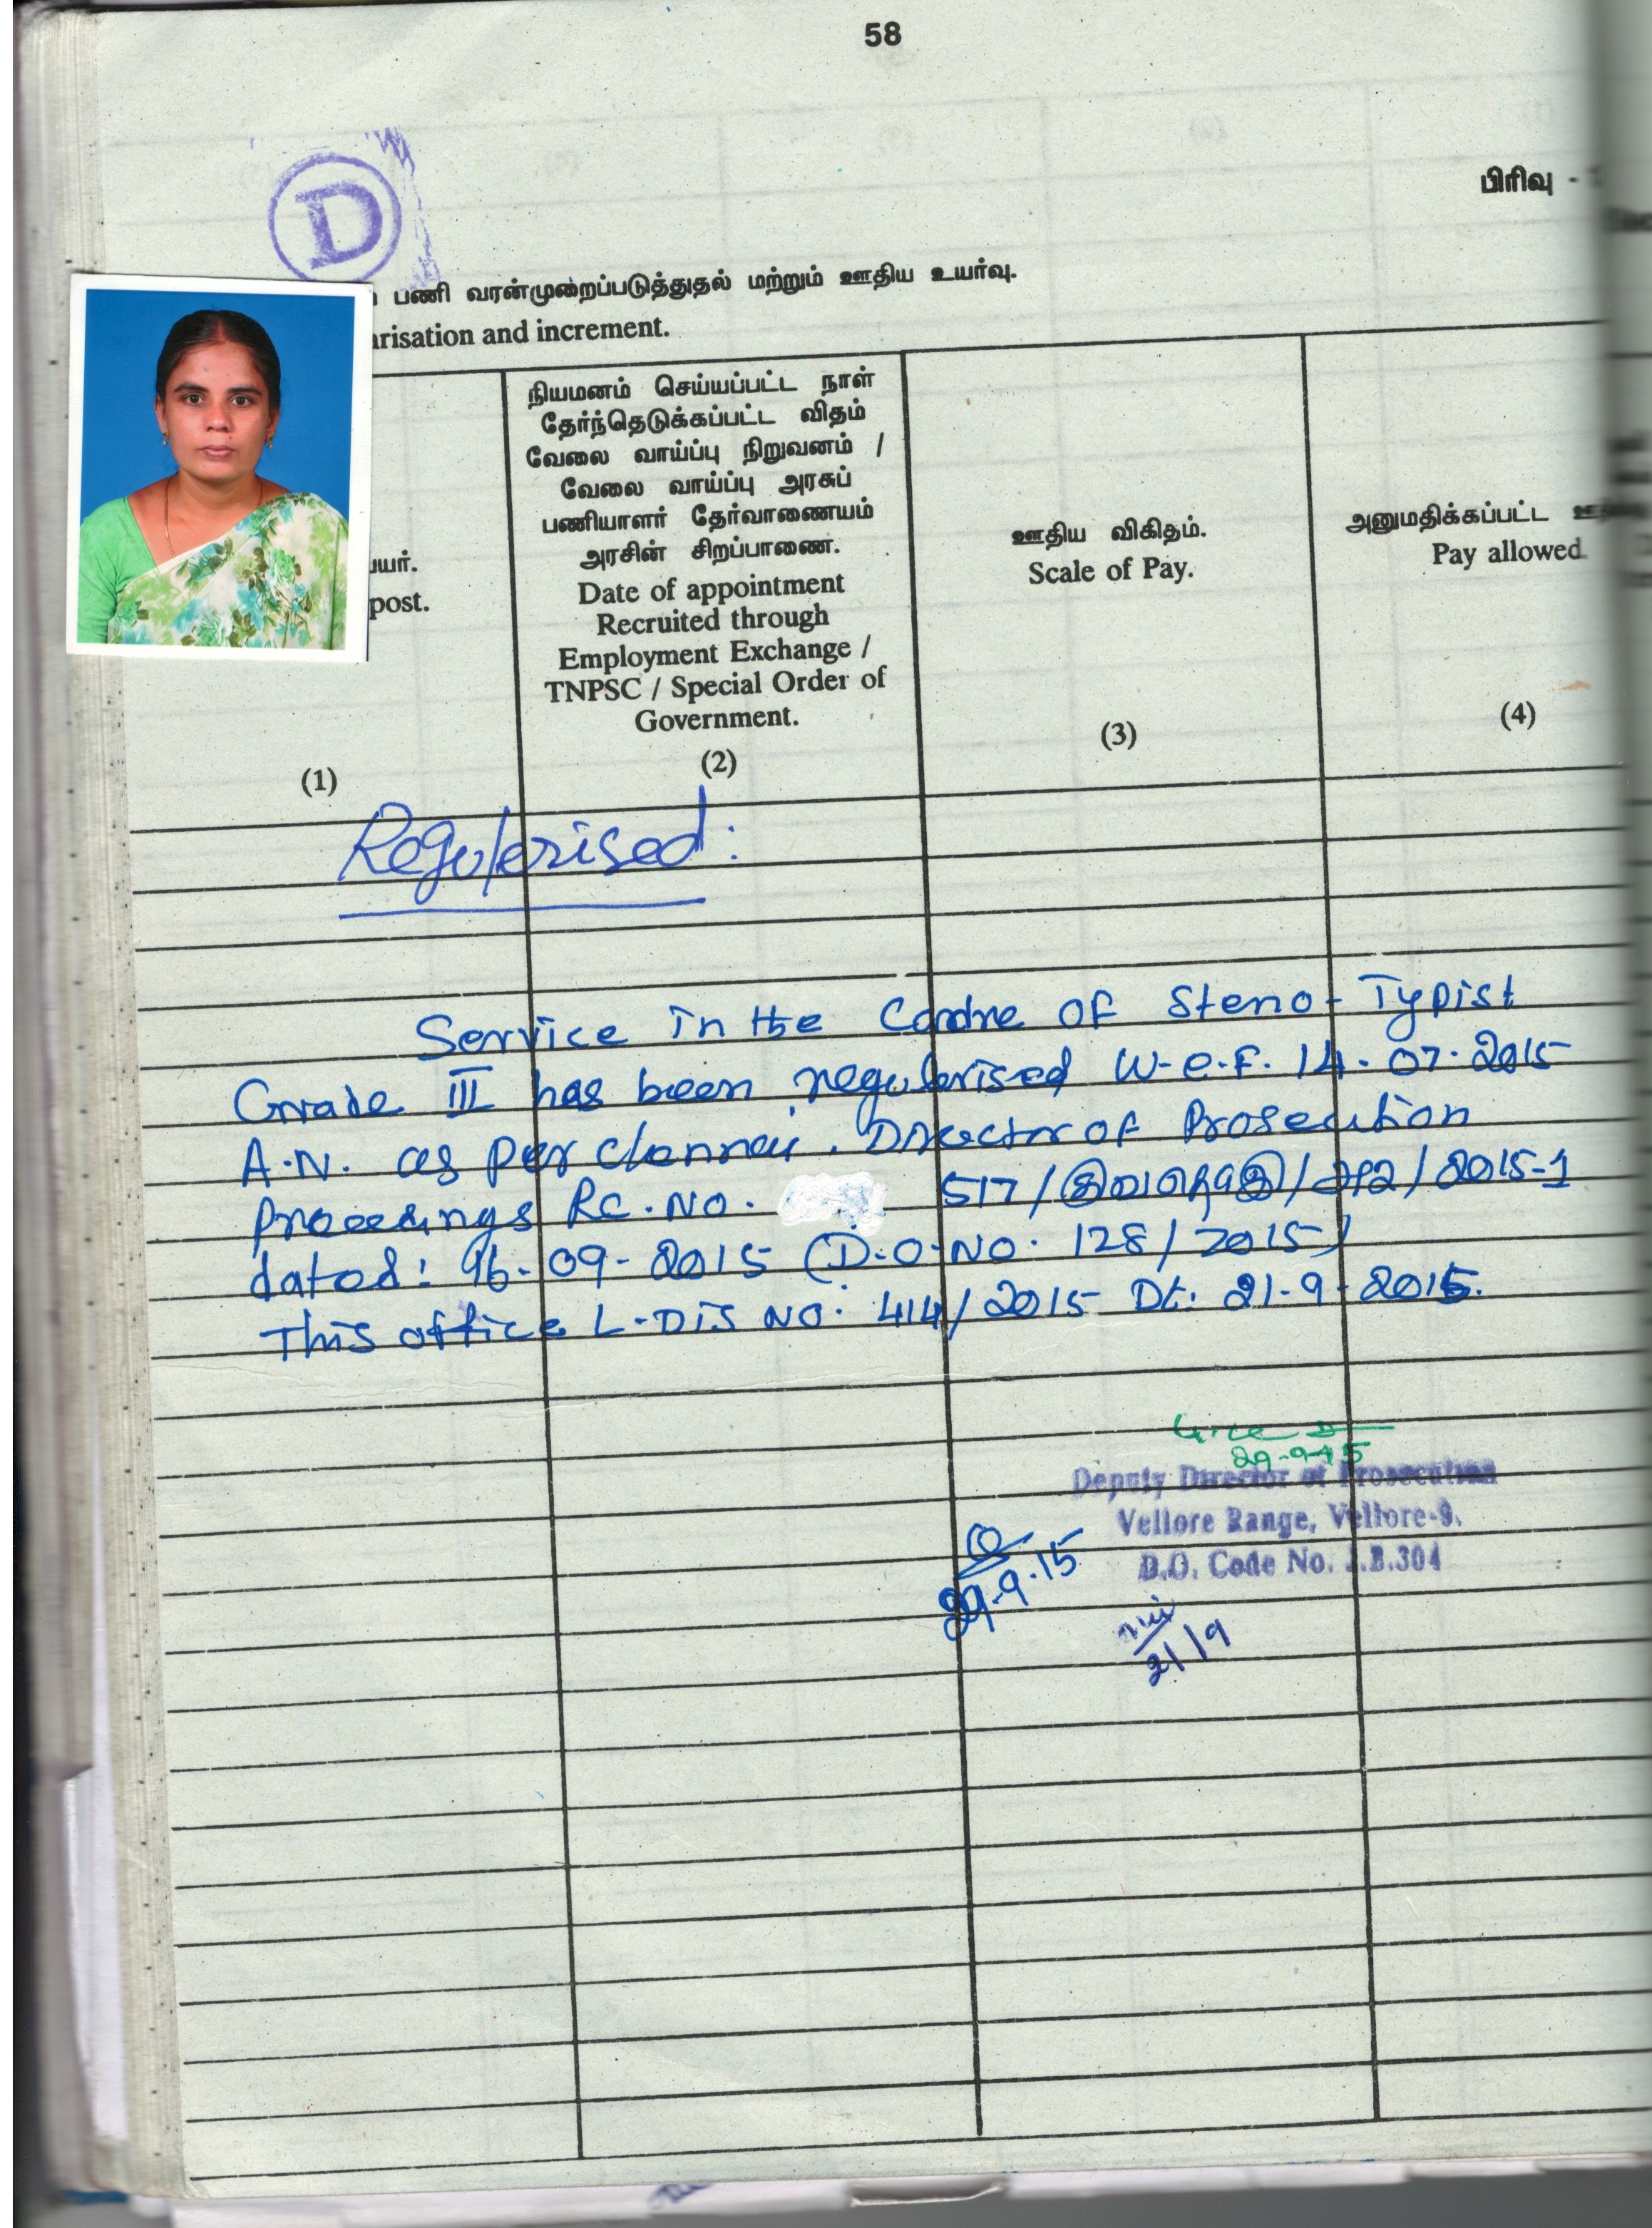 58
D
பிரிவு -
பணி வரன்முறைப்படுத்துதல் மற்றும் ஊதிய உயர்வு.
arisation and increment.
யர்.
post.
(1)
நியமனம் செய்யப்பட்ட நாள்
தேர்ந்தெடுக்கப்பட்ட விதம்
வேலை வாய்ப்பு நிறுவனம் /
வேலை வாய்ப்பு அரசுப்
பணியாளர் தேர்வாணையம்
அரசின் சிறப்பாணை.
Date of appointment
Recruited through
Employment Exchange /
TNPSC / Special Order of
Government.
(2)
ஊதிய விகிதம்.
Scale of Pay.
(3)
அனுமதிக்கப்பட்ட
Pay allowed
(4)
Regulerised:
Service in the Cadre of Steno-Typist
Grade III has been regulerised w.e.f. 14.07.2015
A.N. as per Chennai. Director of Prosecution
Proceedings RC.No. 517/ /2015-1
dated: 16-09-2015 (D.O.No. 128/2015)
This office L.Dis No: 414/2015 Dt: 21-9-2015.
29-9-15
Deputy Director of Prosecution
Vellore Range, Vellore-9.
D.O. Code No. J.B.304
29.9.15
21/9